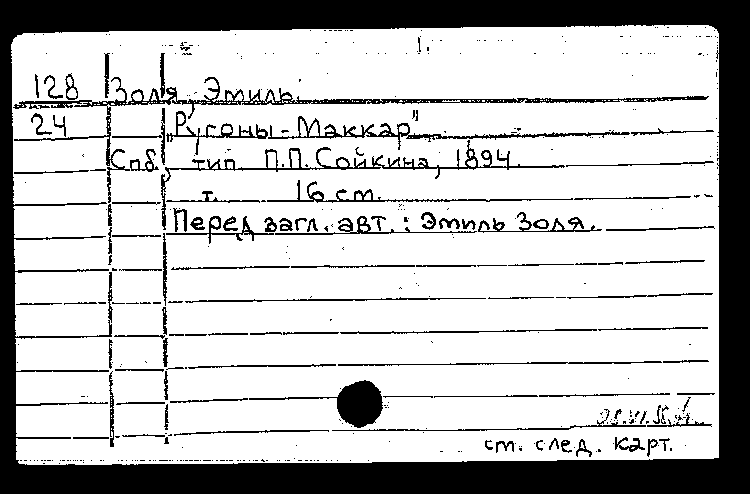 1.
128 Золя, Эмиль.
24 „Ругоны-Маккар"
Спб., тип. П.П. Сойкина, 1894.
т. 16 см.
Перед загл. авт.: Эмиль Золя.
см. след. карт.